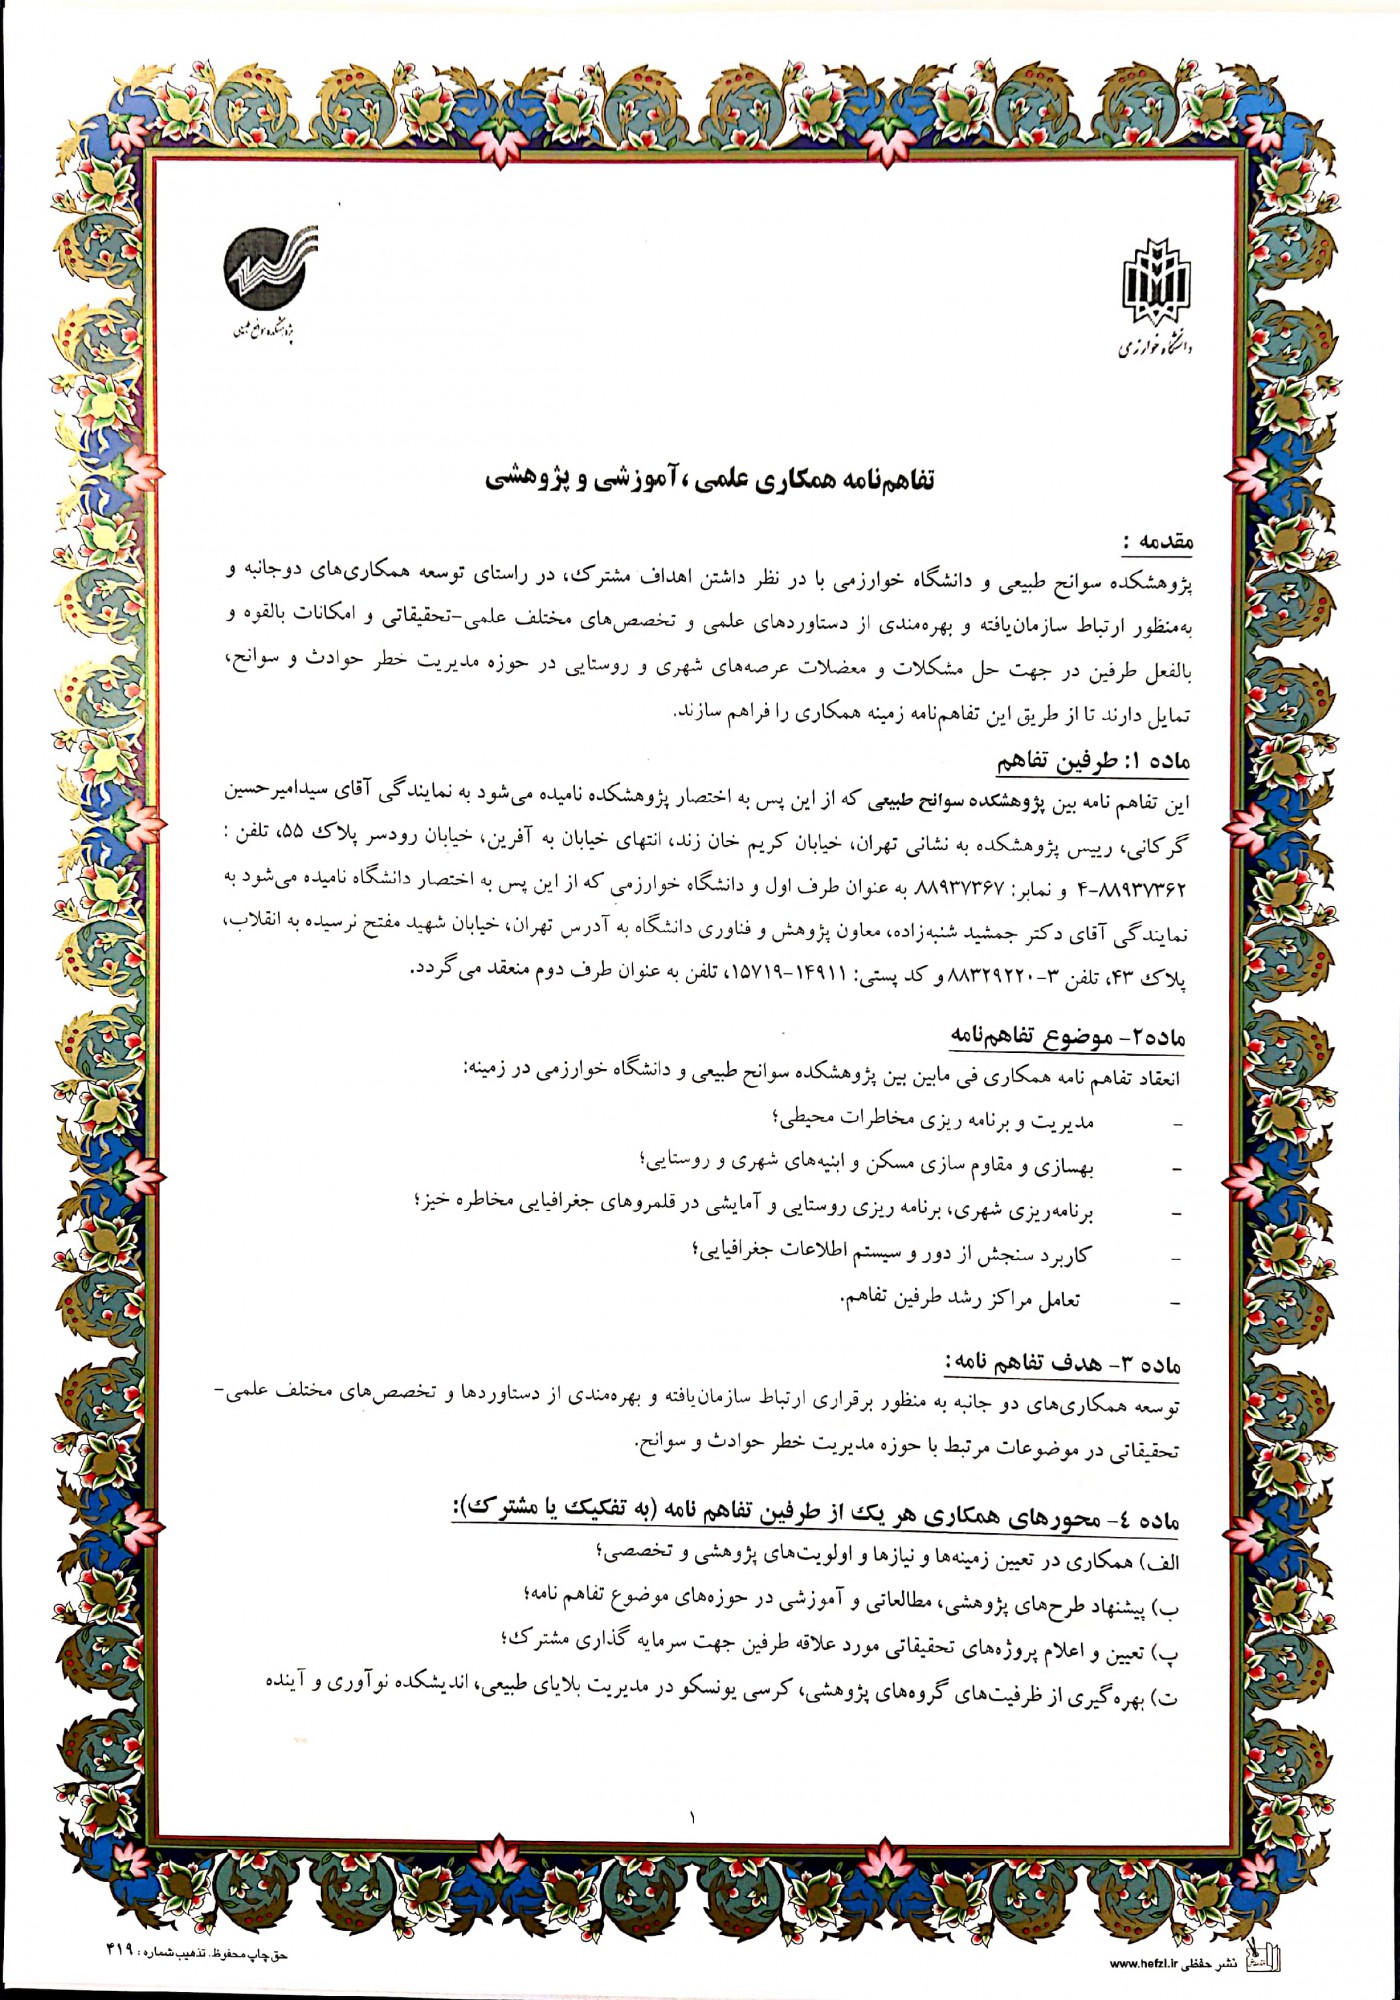 دانشگاه خوارزمی
پژوهشکده سوانح طبیعی
تفاهم‌نامه همکاری علمی ،آموزشی و پژوهشی
مقدمه :
پژوهشکده سوانح طبیعی و دانشگاه خوارزمی با در نظر داشتن اهداف مشترک، در راستای توسعه همکاری‌های دوجانبه و
به‌منظور ارتباط سازمان‌یافته و بهره‌مندی از دستاوردهای علمی و تخصص‌های مختلف علمی-تحقیقاتی و امکانات بالقوه و
بالفعل طرفین در جهت حل مشکلات و معضلات عرصه‌های شهری و روستایی در حوزه مدیریت خطر حوادث و سوانح،
تمایل دارند تا از طریق این تفاهم‌نامه زمینه همکاری را فراهم سازند.
ماده ۱: طرفین تفاهم
این تفاهم نامه بین پژوهشکده سوانح طبیعی که از این پس به اختصار پژوهشکده نامیده می‌شود به نمایندگی آقای سیدامیرحسین
گرکانی، رییس پژوهشکده به نشانی تهران، خیابان کریم خان زند، انتهای خیابان به آفرین، خیابان رودسر پلاک ۵۵، تلفن :
۸۸۹۳۷۳۶۲-۴ و نمابر: ۸۸۹۳۷۳۶۷ به عنوان طرف اول و دانشگاه خوارزمی که از این پس به اختصار دانشگاه نامیده می‌شود به
نمایندگی آقای دکتر جمشید شنبه‌زاده، معاون پژوهش و فناوری دانشگاه به آدرس تهران، خیابان شهید مفتح نرسیده به انقلاب،
پلاک ۴۳، تلفن ۳-۸۸۳۲۹۲۲۰ و کد پستی: ۱۴۹۱۱-۱۵۷۱۹، تلفن به عنوان طرف دوم منعقد می‌گردد.
ماده۲- موضوع تفاهم‌نامه
انعقاد تفاهم نامه همکاری فی مابین بین پژوهشکده سوانح طبیعی و دانشگاه خوارزمی در زمینه:
- مدیریت و برنامه ریزی مخاطرات محیطی؛
- بهسازی و مقاوم سازی مسکن و ابنیه‌های شهری و روستایی؛
- برنامه‌ریزی شهری، برنامه ریزی روستایی و آمایشی در قلمروهای جغرافیایی مخاطره خیز؛
- کاربرد سنجش از دور و سیستم اطلاعات جغرافیایی؛
- تعامل مراکز رشد طرفین تفاهم.
ماده ۳- هدف تفاهم نامه:
توسعه همکاری‌های دو جانبه به منظور برقراری ارتباط سازمان‌یافته و بهره‌مندی از دستاوردها و تخصص‌های مختلف علمی-
تحقیقاتی در موضوعات مرتبط با حوزه مدیریت خطر حوادث و سوانح.
ماده ٤- محورهای همکاری هر یک از طرفین تفاهم نامه (به تفکیک یا مشترک):
الف) همکاری در تعیین زمینه‌ها و نیازها و اولویت‌های پژوهشی و تخصصی؛
ب) پیشنهاد طرح‌های پژوهشی، مطالعاتی و آموزشی در حوزه‌های موضوع تفاهم نامه؛
پ) تعیین و اعلام پروژه‌های تحقیقاتی مورد علاقه طرفین جهت سرمایه گذاری مشترک؛
ت) بهره‌گیری از ظرفیت‌های گروه‌های پژوهشی، کرسی یونسکو در مدیریت بلایای طبیعی، اندیشکده نوآوری و آینده
۱
نشر حفظی www.hefzi.ir
حق چاپ محفوظ. تذهیب شماره : ۴۱۹